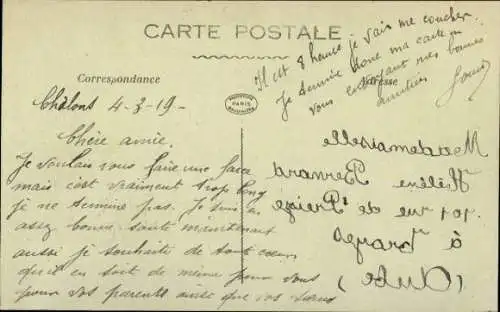 CARTE POSTALE
Il est 8 heures je vais me coucher.
Je termine donc ma carte en
vous envoyant mes bonnes
amitiés
Correspondance
Adresse
PARIS
Châlons 4-3-19-
Chère amie.
Je voulais vous faire une farce
mais c'est vraiment trop long
je ne termine pas. Je suis en
assez bonne santé maintenant
aussi je souhaite de tout cœur
qu'il en soit de même pour vous
pour vos parents ainsi que vos sœurs
Mademoiselle
Hélène
rue de
à Troyes
(Aube)